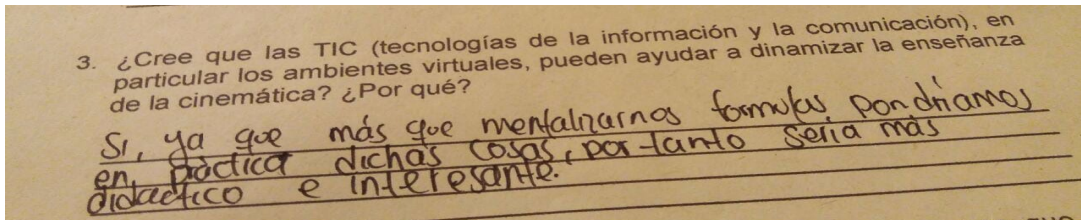 3. ¿Cree que las TIC (tecnologías de la información y la comunicación), en
particular los ambientes virtuales, pueden ayudar a dinamizar la enseñanza
de la cinemática? ¿Por qué?
Si, ya que más que mentalizarnos formulas pondriamos
en práctica dichas cosas, por tanto seria más
didactico e interesante.